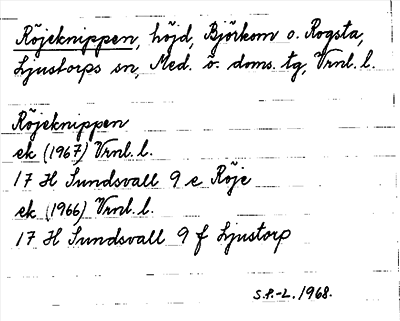 Röjeknippen, höjd, Björkom o. Rogsta,
Ljustorps sn, Med. ö. doms. tg, Vrnl. l.
Röjeknippen
ek (1967) Vrnl. l.
17 H Sundsvall 9 e Röje
ek (1966) Vrnl. l.
17 H Sundsvall 9 f Ljustorp
S.P.-L. 1968.